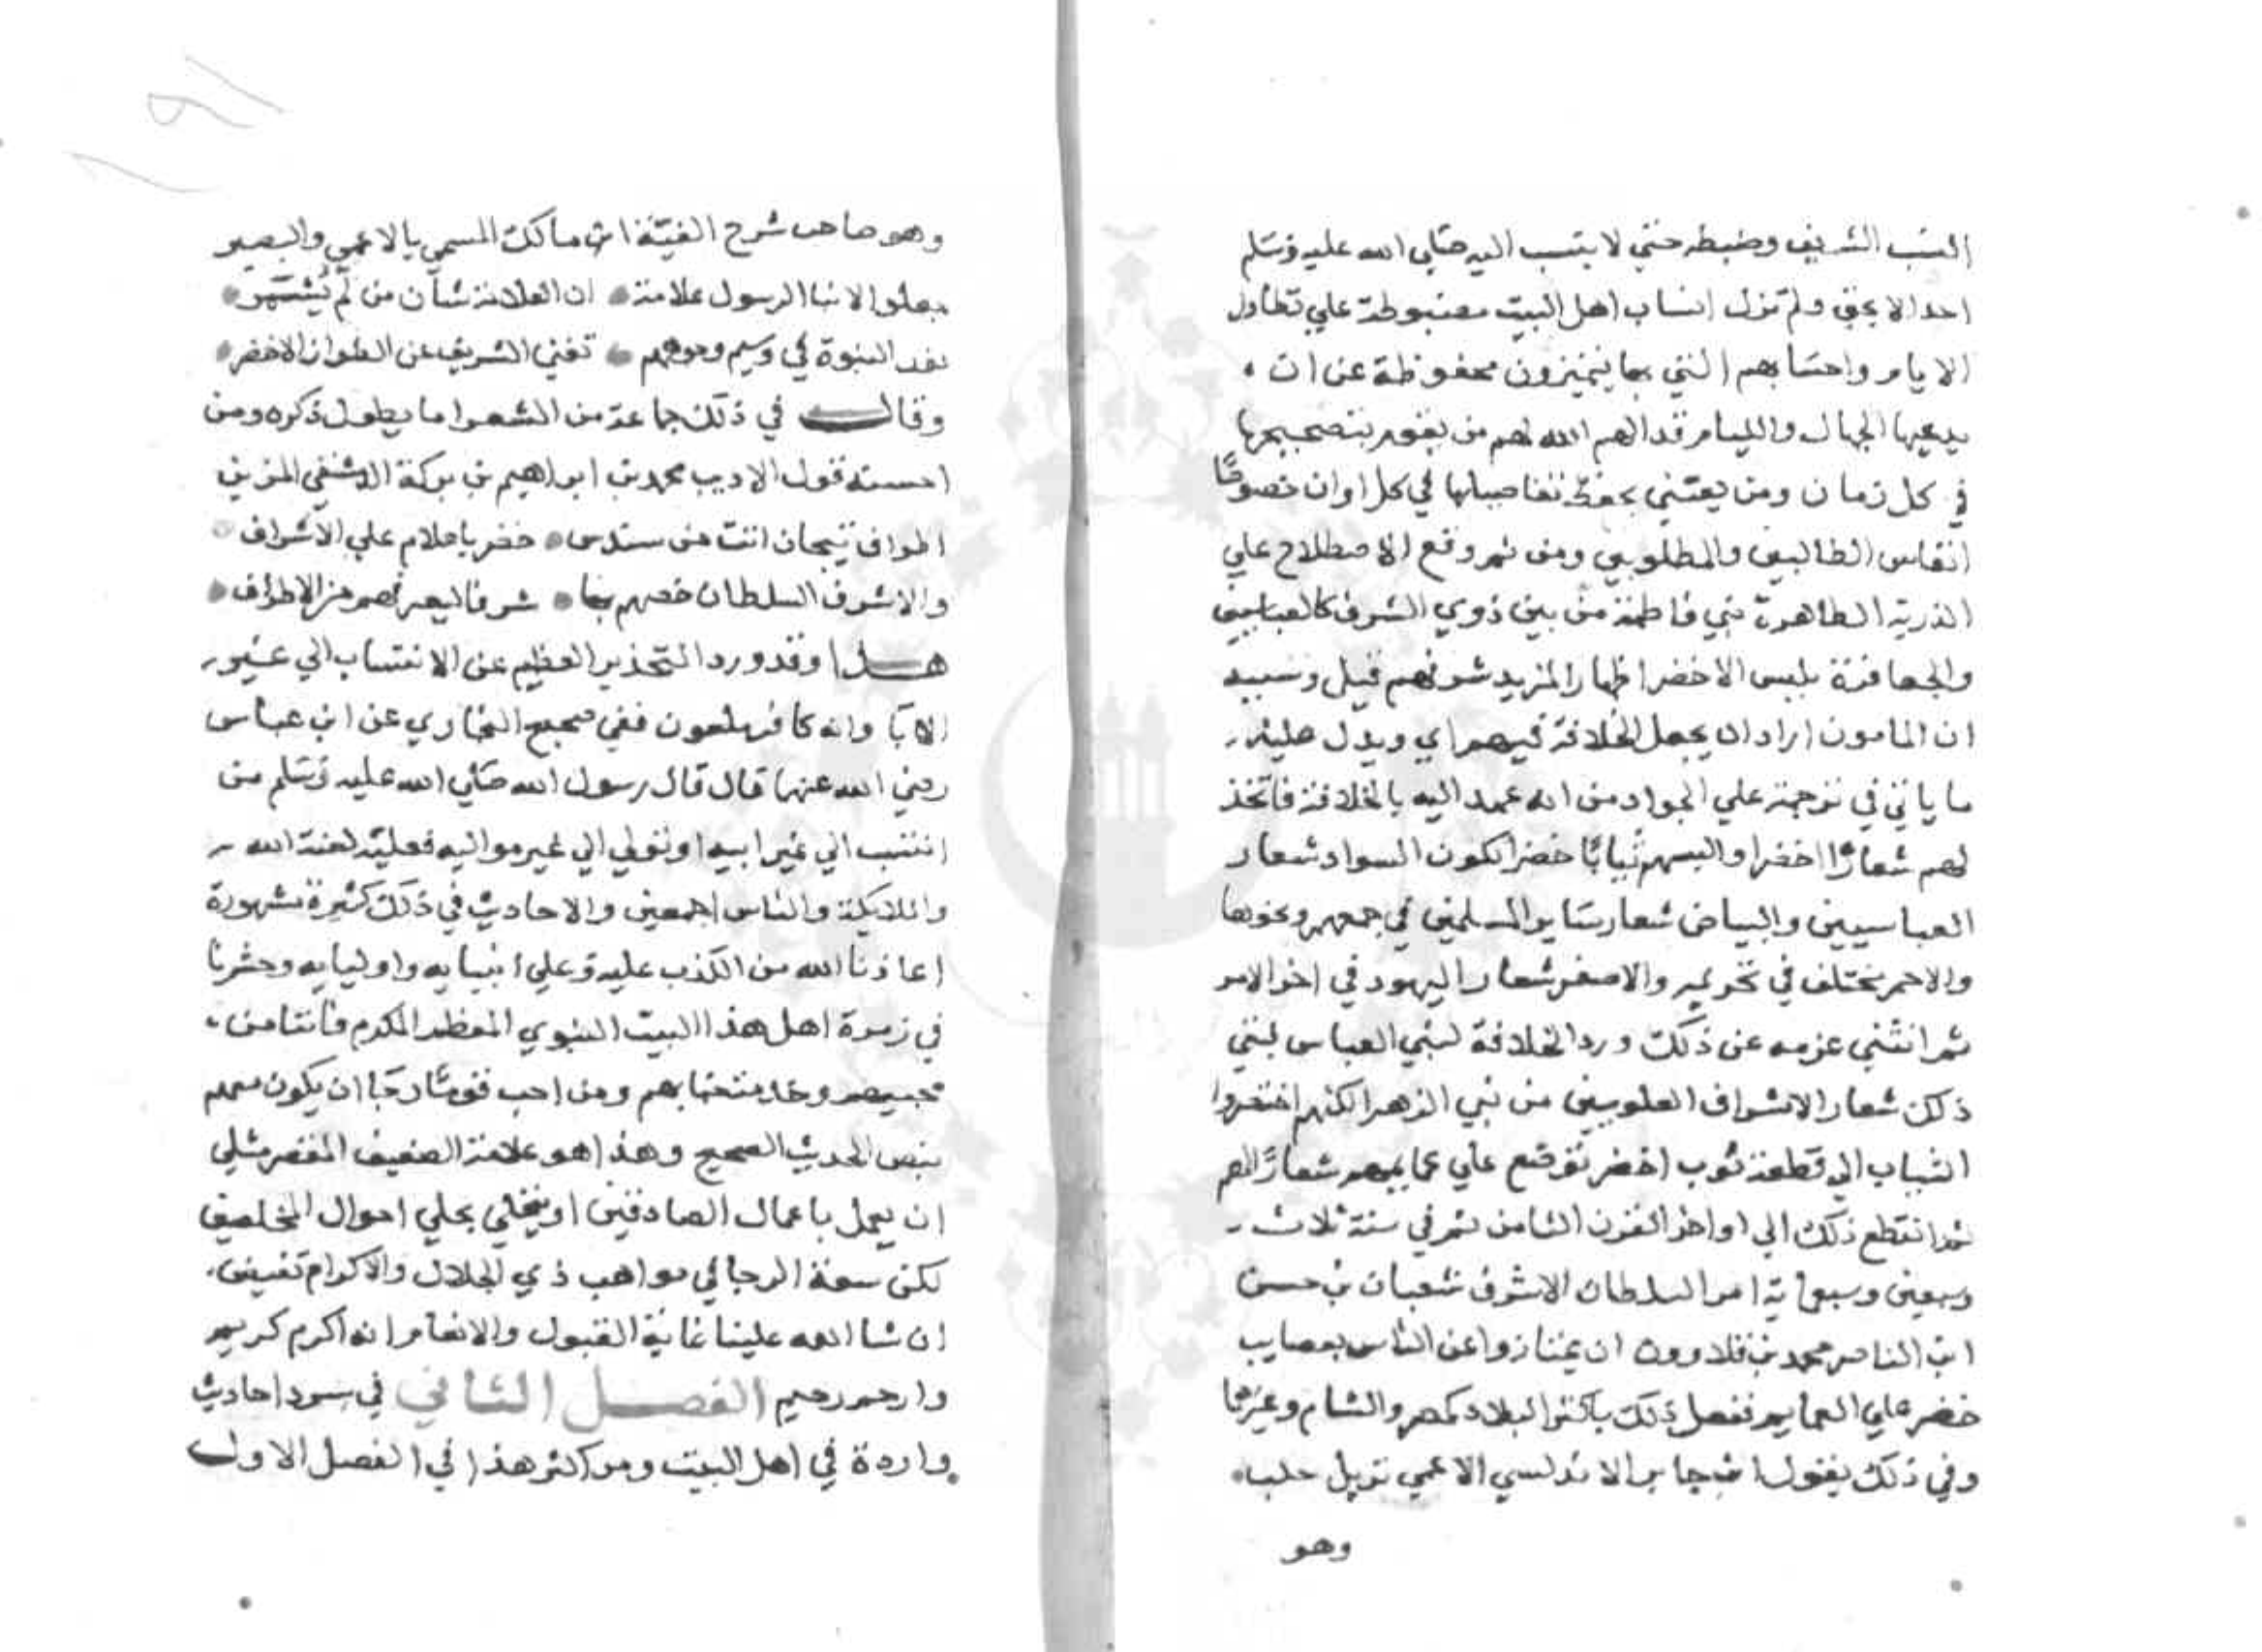 النسب الشريف وضبطه حتي لا ينتسب اليه صلي الله عليه وسلم
احد الا بحق ولم تزل انساب اهل البيت مضبوطة علي تطاول
الايام واحسابهم التي بها يتميزون محفوظة عن ان
يدعيها الجهال والليام قد الهم الله لهم من يقوم بتصحيحها
في كل زمان ومن يعتني بحفظ تفاصيلها في كل اوان خصوصًا
انفاس الطالبين والمطلوبين ومن ثم وقع الاصطلاح علي
الذرية الطاهرة بني فاطمة من بين ذوي الشرف كالعباسيين
والجعافرة بلبس الاخضر اظهارا لمزيد شرفهم قيل وسببه
ان المامون اراد ان يجعل الخلافة فيهم اي ويدل عليه
ما ياتي في ترجمة علي الجواد من انه عهد اليه بالخلافة فاتخذ
لهم شعارًا اخضر او البسهم ثيابًا خضرا لكون السواد شعار
العباسيين والبياض شعار ساير المسلمين في جمعهم ونحوها
والاحمر مختلف في تحريمه والاصفر شعار اليهود في اخر الامر
ثم انثني عزمه عن ذلك ورد الخلافة لبني العباس فبقي
ذلك شعار الاشراف العلويين من بني الزهرا لكنهم اختصروا
الثياب الي قطعة ثوب اخضر توضع علي عمايمهم شعارًا لهم
ثم انقطع ذلك الي اواخر القرن الثامن ثم في سنة ثلاث
وسبعين وسبعماية امر السلطان الاشرف شعبان بن حسن
ابن الناصر محمد بن قلاوون ان يمتازوا عن الناس بعصايب
خضر علي العمايم ففعل ذلك باكثر البلاد كمصر والشام وغيرهما
وفي ذلك يقول ابن جابر الاندلسي الاعمي نزيل حلب
وهو
وهو صاحب شرح الفية ابن مالك المسمي بالاعمي والبصير
جعلوا لابنا الرسول علامة ان العلامة شأن من لم يُشهَر
نور النبوة في وسيم وجوههم تغني الشريف عن الطراز الاخضر
وقال في ذلك جماعة من الشعرا ما يطول ذكره ومن
احسنه قول الاديب محمد بن ابراهيم بن بركة الدمشقي المزين
اطراف تيجان اتت من سندس خضر باعلام علي الاشراف
والاشرف السلطان خصهم بها شرفا ليعرفهم من الاطراف
هذا وقد ورد التحذير العظيم عن الانتساب الي غير
الابا وانه كافر ملعون ففي صحيح البخاري عن ابن عباس
رضي الله عنهما قال قال رسول الله صلي الله عليه وسلم من
انتسب الي غير ابيه او تولي الي غير مواليه فعليه لعنة الله
والملايكة والناس اجمعين والاحاديث في ذلك كثيرة مشهورة
اعاذنا الله من الكذب عليه وعلي انبيايه واوليايه وحشرنا
في زمرة اهل هذا البيت النبوي المعظم المكرم فاننا من
محبيهم وخدمة جنابهم ومن احب قومًا رجا ان يكون معهم
بنص الحديث الصحيح وهذا هو علامة الضعيف المقصر مثلي
ان يعمل باعمال الصادقين او يتحلي بحلي احوال المخلصين
لكن سعة الرجا في مواهب ذي الجلال والاكرام تفيض
ان شا الله علينا غاية القبول والانعام انه اكرم كريم
وارحم رحيم الفصل الثاني في سرد احاديث
واردة في اهل البيت ومر اكثر هذا في الفصل الاول